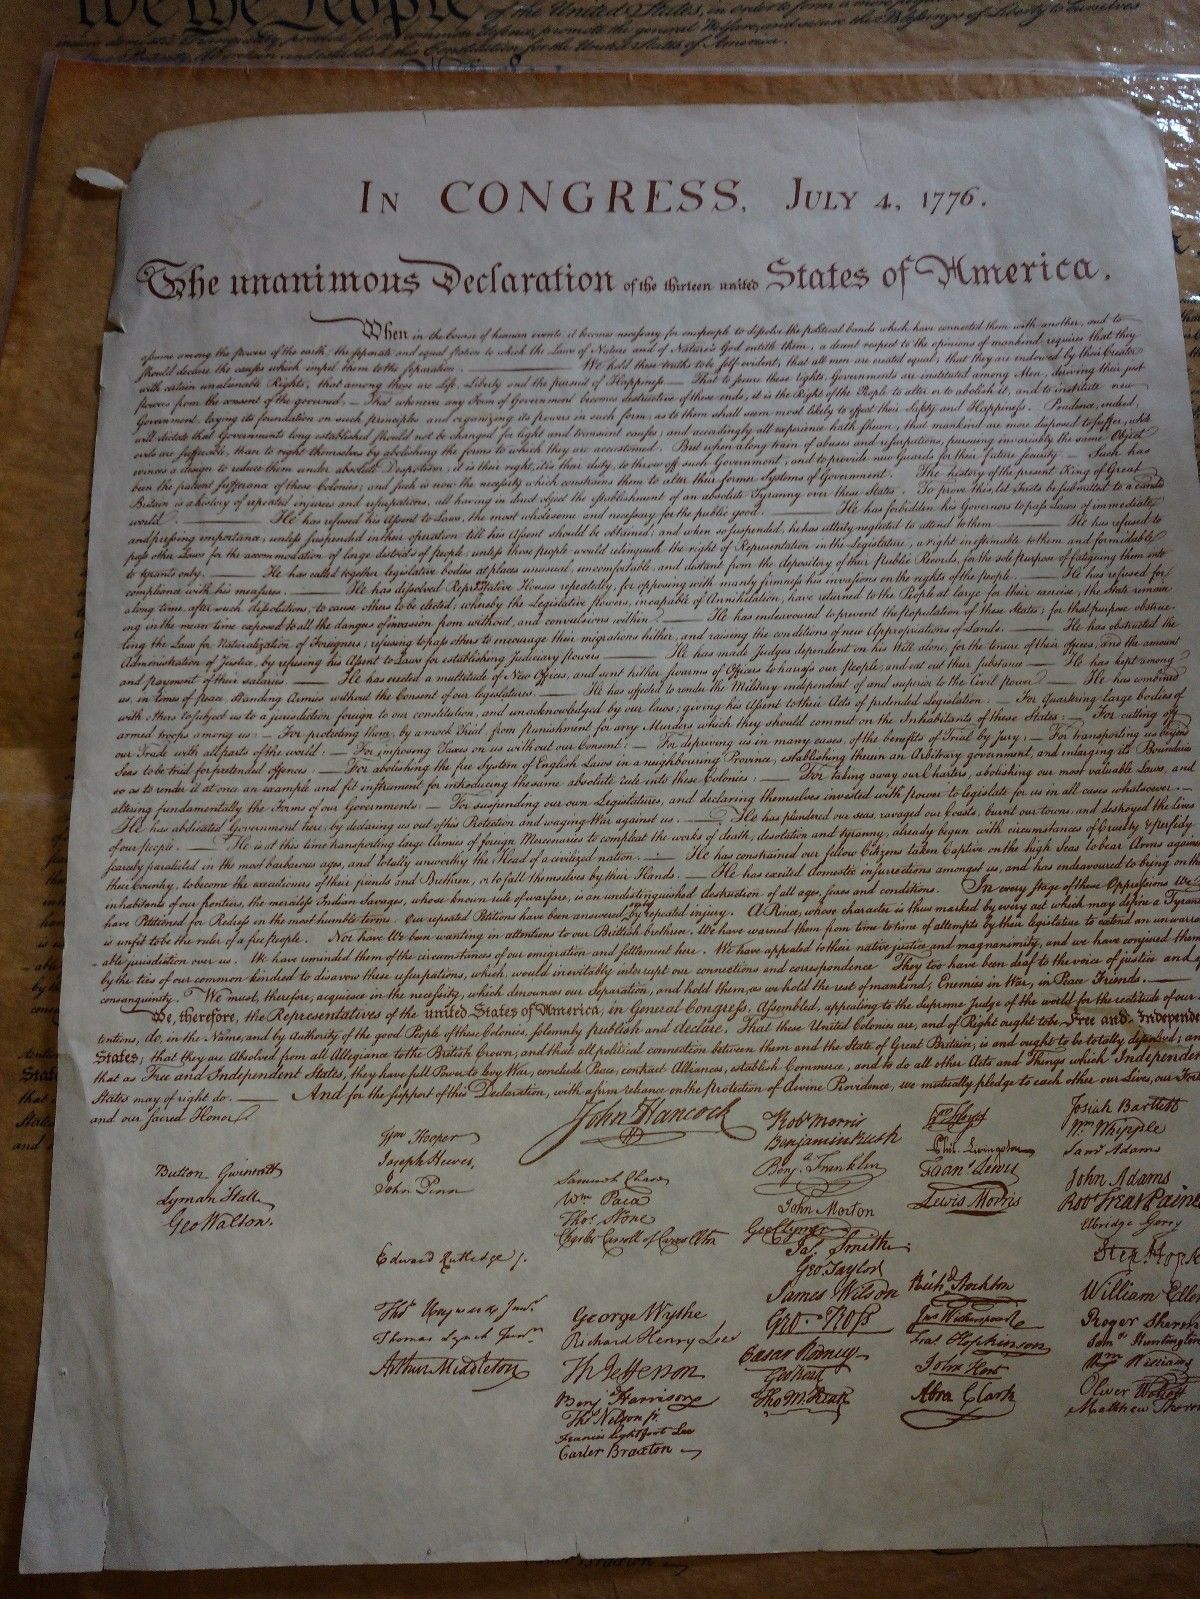 We the People of the United States, in order to form a more
promote the general Welfare, and secure the Blessings of Liberty to ourselves
this Constitution for the United States of America.
IN CONGRESS, JULY 4, 1776.
The unanimous Declaration of the thirteen united States of America.
When in the Course of human events it becomes necessary for one people to dissolve the political bands which have connected them with another, and to
assume among the powers of the earth, the separate and equal station to which the Laws of Nature and of Nature's God entitle them, a decent respect to the opinions of mankind requires that they
should declare the causes which impel them to the separation. — We hold these truths to be self-evident, that all men are created equal, that they are endowed by their Creator
with certain unalienable Rights, that among these are Life, Liberty and the pursuit of Happiness — That to secure these rights, Governments are instituted among Men, deriving their just
powers from the consent of the governed, — That whenever any Form of Government becomes destructive of these ends, it is the Right of the People to alter or to abolish it, and to institute new
Government, laying its foundation on such principles and organizing its powers in such form, as to them shall seem most likely to effect their Safety and Happiness. Prudence, indeed,
will dictate that Governments long established should not be changed for light and transient causes; and accordingly all experience hath shewn, that mankind are more disposed to suffer, while
evils are sufferable, than to right themselves by abolishing the forms to which they are accustomed. But when a long train of abuses and usurpations, pursuing invariably the same Object
evinces a design to reduce them under absolute Despotism, it is their right, it is their duty, to throw off such Government, and to provide new Guards for their future security — Such has
been the patient sufferance of these Colonies; and such is now the necessity which constrains them to alter their former Systems of Government. The history of the present King of Great
Britain is a history of repeated injuries and usurpations, all having in direct object the establishment of an absolute Tyranny over these States. To prove this, let Facts be submitted to a candid
world. — He has refused his Assent to Laws, the most wholesome and necessary for the public good. — He has forbidden his Governors to pass Laws of immediate
and pressing importance, unless suspended in their operation till his Assent should be obtained; and when so suspended, he has utterly neglected to attend to them — He has refused to
pass other Laws for the accommodation of large districts of people, unless those people would relinquish the right of Representation in the Legislature, a right inestimable to them and formidable
to tyrants only. — He has called together legislative bodies at places unusual, uncomfortable, and distant from the depository of their Public Records, for the sole purpose of fatiguing them into
compliance with his measures. — He has dissolved Representative Houses repeatedly, for opposing with manly firmness his invasions on the rights of the people. — He has refused for
a long time, after such dissolutions, to cause others to be elected; whereby the Legislative powers, incapable of Annihilation, have returned to the People at large for their exercise; the State remain-
ing in the mean time exposed to all the dangers of invasion from without, and convulsions within. — He has endeavoured to prevent the population of these States; for that purpose obstruc-
ting the Laws for Naturalization of Foreigners; refusing to pass others to encourage their migrations hither, and raising the conditions of new Appropriations of Lands. — He has obstructed the
Administration of Justice, by refusing his Assent to Laws for establishing Judiciary powers — He has made Judges dependent on his Will alone, for the tenure of their offices, and the amount
and payment of their salaries — He has erected a multitude of New Offices, and sent hither swarms of Officers to harrass our people, and eat out their substance — He has kept among
us, in times of peace, Standing Armies without the Consent of our legislatures. — He has affected to render the Military independent of and superior to the Civil power. — He has combined
with others to subject us to a jurisdiction foreign to our constitution, and unacknowledged by our laws; giving his Assent to their Acts of pretended Legislation: — For Quartering large bodies of
armed troops among us: — For protecting them, by a mock Trial, from punishment for any Murders which they should commit on the Inhabitants of these States: — For cutting off
our Trade with all parts of the world: — For imposing Taxes on us without our Consent: — For depriving us in many cases, of the benefits of Trial by Jury: — For transporting us beyond
Seas to be tried for pretended offences: — For abolishing the free System of English Laws in a neighbouring Province, establishing therein an Arbitrary government, and enlarging its Boundaries
so as to render it at once an example and fit instrument for introducing the same absolute rule into these Colonies: — For taking away our Charters, abolishing our most valuable Laws, and
altering fundamentally the Forms of our Governments: — For suspending our own Legislatures, and declaring themselves invested with power to legislate for us in all cases whatsoever. —
He has abdicated Government here, by declaring us out of his Protection and waging War against us. — He has plundered our seas, ravaged our Coasts, burnt our towns, and destroyed the lives
of our people. — He is at this time transporting large Armies of foreign Mercenaries to compleat the works of death, desolation and tyranny, already begun with circumstances of Cruelty & perfidy
scarcely paralleled in the most barbarous ages, and totally unworthy the Head of a civilized nation. — He has constrained our fellow Citizens taken Captive on the high Seas to bear Arms against
their Country, to become the executioners of their friends and Brethren, or to fall themselves by their Hands. — He has excited domestic insurrections amongst us, and has endeavoured to bring on the
inhabitants of our frontiers, the merciless Indian Savages, whose known rule of warfare, is an undistinguished destruction of all ages, sexes and conditions. In every stage of these Oppressions We
have Petitioned for Redress in the most humble terms: Our repeated Petitions have been answered only by repeated injury. A Prince, whose character is thus marked by every act which may define a Tyrant,
is unfit to be the ruler of a free people. Nor have We been wanting in attentions to our Brittish brethren. We have warned them from time to time of attempts by their legislature to extend an unwarrant-
-able jurisdiction over us. We have reminded them of the circumstances of our emigration and settlement here. We have appealed to their native justice and magnanimity, and we have conjured them
by the ties of our common kindred to disavow these usurpations, which, would inevitably interrupt our connections and correspondence They too have been deaf to the voice of justice and of
consanguinity. We must, therefore, acquiesce in the necessity, which denounces our Separation, and hold them, as we hold the rest of mankind, Enemies in War, in Peace Friends. —
We, therefore, the Representatives of the united States of America, in General Congress, Assembled, appealing to the Supreme Judge of the world for the rectitude of our
tentions, do, in the Name, and by Authority of the good People of these Colonies, solemnly publish and declare, That these United Colonies are, and of Right ought to be Free and Independent
States; that they are Absolved from all Allegiance to the British Crown, and that all political connection between them and the State of Great Britain, is and ought to be totally dissolved; and
that as Free and Independent States, they have full Power to levy War, conclude Peace, contract Alliances, establish Commerce, and to do all other Acts and Things which Independent
States may of right do. — And for the support of this Declaration, with a firm reliance on the protection of divine Providence, we mutually pledge to each other our Lives, our Fort
and our sacred Honor.
Button Gwinnett
Lyman Hall
Geo Walton.
Wm Hooper
Joseph Hewes,
John Penn
Edward Rutledge /.
Thos Heyward Junr.
Thomas Lynch Junr.
Arthur Middleton
John Hancock
Samuel Chase
Wm Paca
Thos Stone
Charles Carroll of Carrollton
George Wythe
Richard Henry Lee
Th Jefferson
Benj Harrison
Thos Nelson jr.
Francis Lightfoot Lee
Carter Braxton
Robt Morris
Benjamin Rush
Benj. Franklin
John Morton
Geo Clymer
Jas. Smith
Geo. Taylor
James Wilson
Geo. Ross
Caesar Rodney
Geo Read
Tho M:Kean
Wm Floyd
Phil. Livingston
Frans. Lewis
Lewis Morris
Richd. Stockton
Jno Witherspoon
Fras. Hopkinson
John Hart
Abra Clark
Josiah Bartlett
Wm Whipple
Saml Adams
John Adams
Robt Treat Paine
Elbridge Gerry
Step. Hopk
William Eller
Roger Sherm
Saml Huntington
Wm Williams
Oliver Wolcott
Matthew Thorn